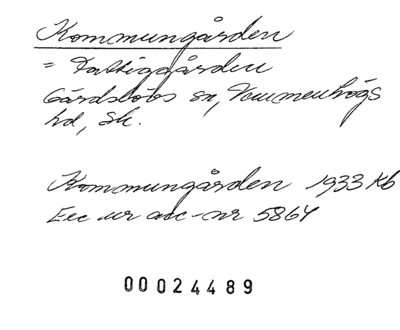 Kommungården
= Fattiggården
Gärdslövs sn, Vemmenhögs
hd, Sk.
Kommungården 1933 Kb
Exc ur acc-nr 5864
00024489